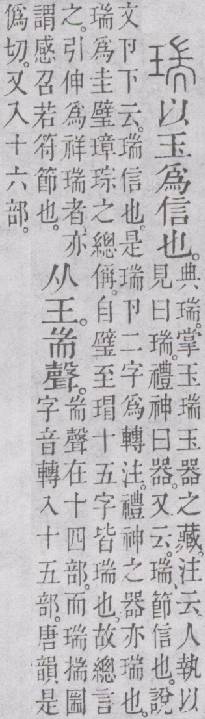 瑞以玉爲信也。
典瑞。掌玉瑞玉器之藏。注云。人執以
見曰瑞。禮神曰器。又云。瑞、節信也。說
文卪下云。瑞信也。是瑞卪二字爲轉注。禮神之器亦瑞也。
瑞爲圭璧璋琮之總偁。自璧至瑁十五字皆瑞也。故總言
之。引伸爲祥瑞者、亦
謂感召若符節也。
从王。耑聲。
耑聲在十四部。而瑞揣圖
字音轉入十五部。唐韻是
僞切。又入十六部。